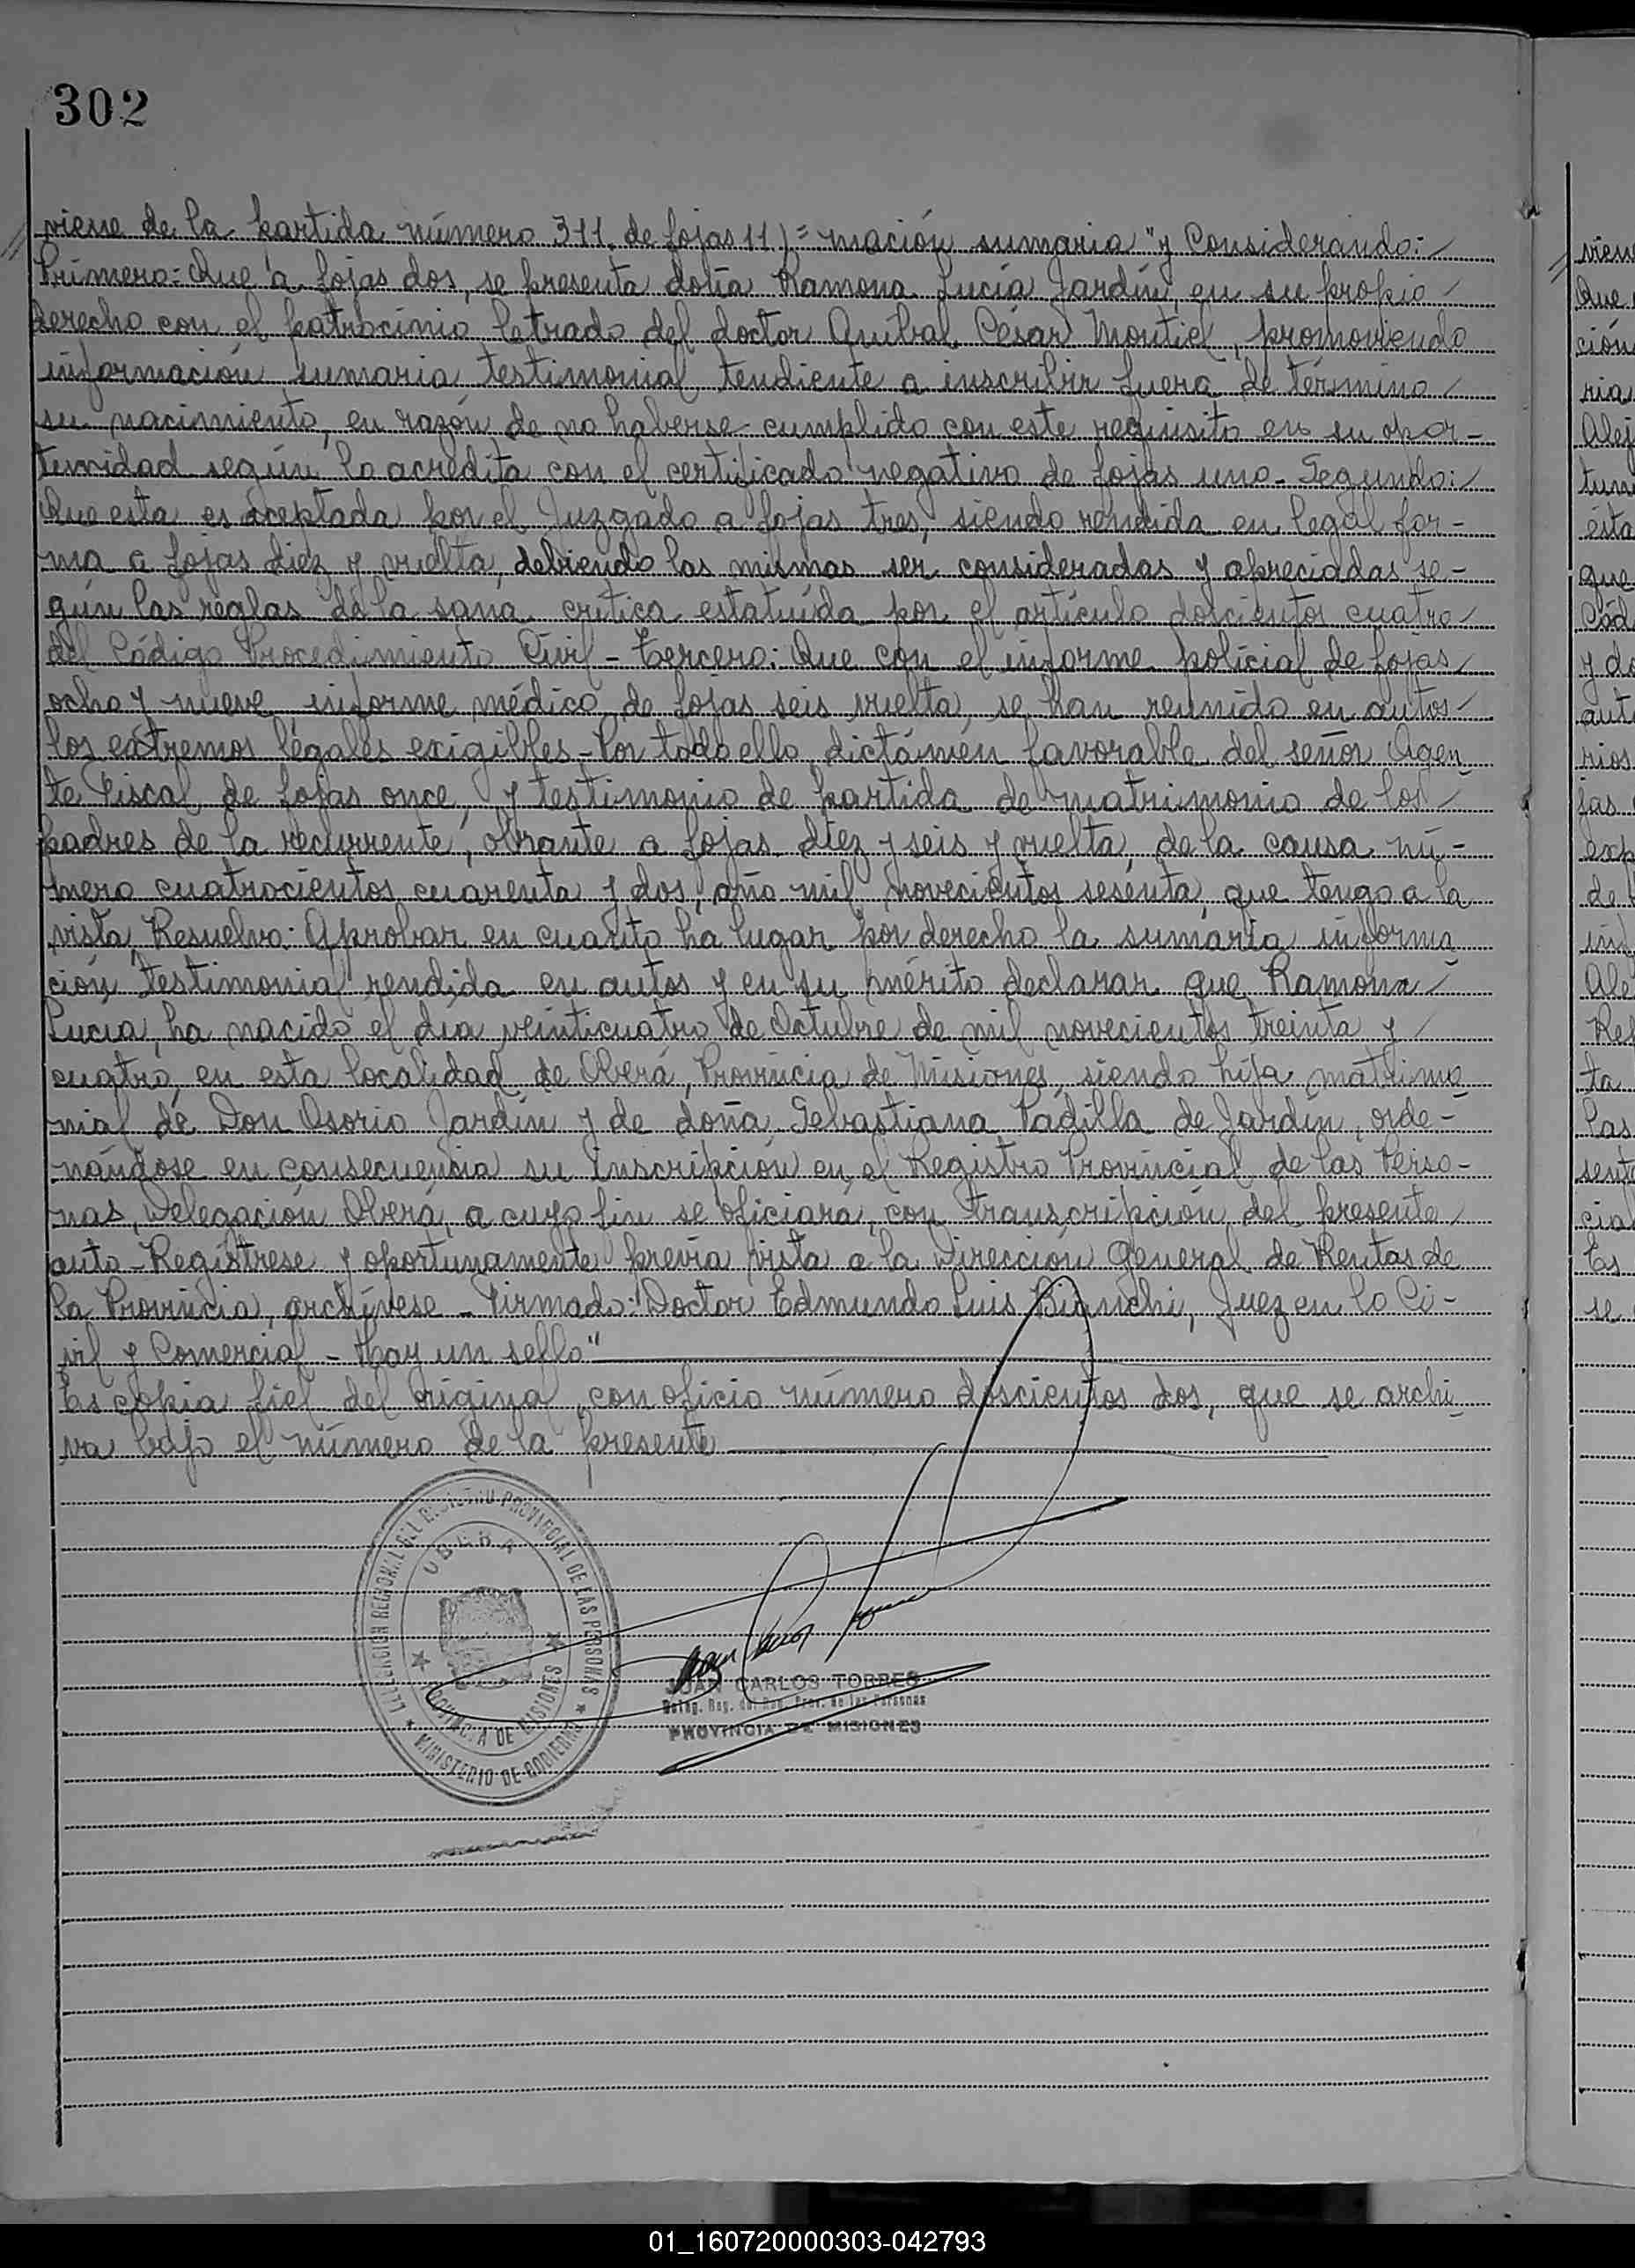 302
viene de la partida número 311. de fojas 11) = mación sumaria" y Considerando:
Primero: Que a fojas dos, se presenta doña Ramona Lucía Jardín, en su propio
derecho con el patrocinio letrado del doctor Anibal César Montiel, promoviendo
información sumaria testimonial tendiente a inscribir fuera de término
su nacimiento, en razón de no haberse cumplido con este requisito en su opor-
tunidad según lo acredita con el certificado negativo de fojas uno - Segundo:
Que esta es aceptada por el Juzgado a fojas tres, siendo rendida en legal for-
ma a fojas diez y vuelta, debiendo las mismas ser consideradas y apreciadas se-
gún las reglas de la sana crítica estatuída por el artículo doscientos cuatro
del Código Procedimiento Civil - Tercero: Que con el informe policial de fojas
ocho y nueve informe médico de fojas seis vuelta, se han reunido en autos
los extremos légales exigibles - Por todo ello, dictámen favorable del señor Agen
te Fiscal de fojas once, y testimonio de partida de matrimonio de los
padres de la recurrente, obrante a fojas diez y seis y vuelta, de la causa nú-
mero cuatrocientos cuarenta y dos, año mil novecientos sesenta, que tengo a la
vista, Resuelvo: Aprobar en cuanto ha lugar por derecho la sumaria informa
ción testimonial rendida en autos y en su mérito declarar que Ramona
Lucía, ha nacido el día veinticuatro de Octubre de mil novecientos treinta y
cuatro, en esta localidad de Oberá, Provincia de Misiones, siendo hija matrimo
nial de Don Osorio Jardín y de doña Sebastiana Padilla de Jardín, orde-
nándose en consecuencia su inscripción en el Registro Provincial de las Perso-
nas, Delegación Oberá, a cuyo fin se oficiará, con transcripción del presente
auto - Regístrese y oportunamente previa vista a la Dirección General de Rentas de
la Provincia, archívese - Firmado: Doctor Edmundo Luis Bianchi, Juez en lo Ci-
vil y Comercial - Hay un sello"
Es copia fiel del original, con oficio número doscientos dos, que se archi
va bajo el número de la presente
DELEGACION REGIONAL DEL REGISTRO PROVINCIAL DE LAS PERSONAS
OBERA
PROVINCIA DE MISIONES
MINISTERIO DE GOBIERNO
JUAN CARLOS TORRES
Deleg. Reg. del Reg. Prov. de las Personas
PROVINCIA DE MISIONES
vien
Que
ción
ria
Alej
tun
ésta
que
Cód
y do
aut
rios
jas
exp
de
inf
Ale
Res
ta
Las
sent
cial
Es
se
01_160720000303-042793